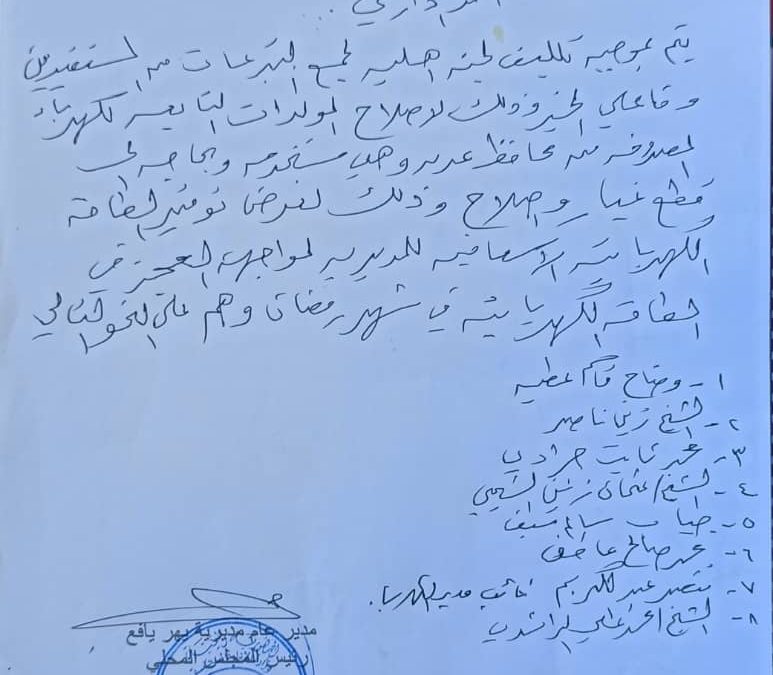 يتم بموجبه تكليف لجنه اهليه لجمع التبرعات من المستفيدين
وفاعلي الخير وذلك لاصلاح المولدات التابعه لكهرباء
المصروفه من محافظ عدن وهي مستخدمه وبحاجه الى
قطع غيار واصلاح وذلك لغرض توفير الطاقه
الكهربائيه الاسعافيه للمديريه لمواجهة العجز في
الطاقه الكهربائيه في شهر رمضان وهم على النحو التالي
١- وضاح قاسم عطيه
٢- الشيخ زين ناصر
٣- محمد ثابت جرادي
٤- الشيخ/ عثمان زين الشعيبي
٥- سالم سيف
٦- محمد صالح عاطف
٧- منتصر عبدالكريم نائب مدير الكهرباء.
٨- الشيخ احمد علي الراشدي
مدير عام مديرية يهر يافع
رئيس المجلس المحلي